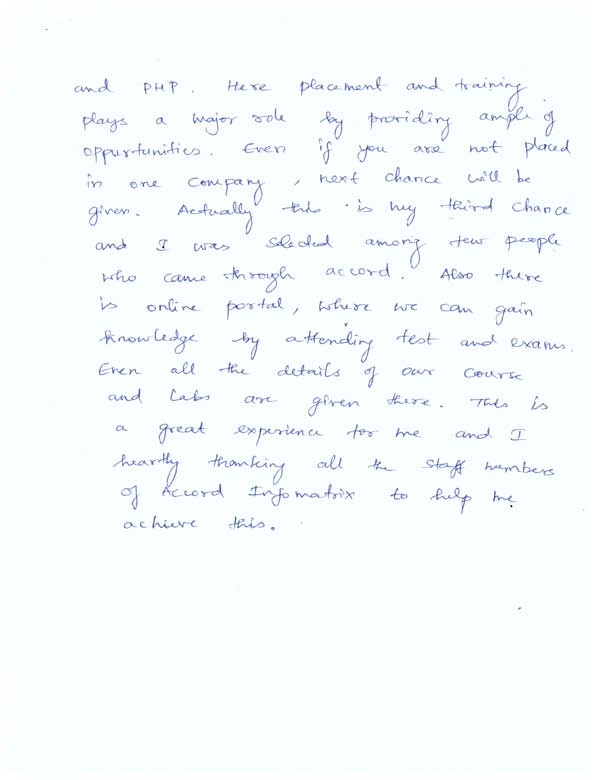 and PHP. Here placement and training
plays a major role by providing ample of
oppurtunities. Even if you are not placed
in one company, next chance will be
given. Actually this is my third chance
and I was selected among few people
who came through accord. Also there
is online portal, where we can gain
knowledge by attending test and exams.
Even all the details of our course
and Labs are given there. This is
a great experience for me and I
heartly thanking all the staff numbers
of Accord Infomatrix to help me
achieve this.